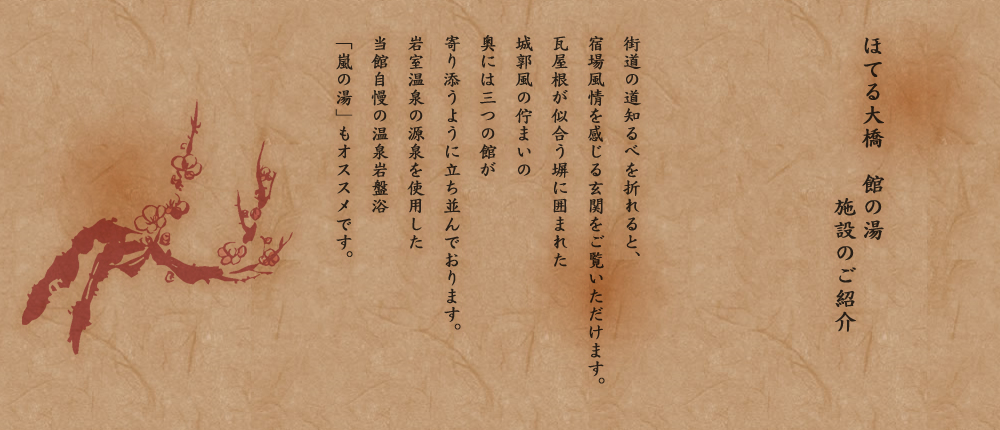 ほてる大橋　館の湯
施設のご紹介
街道の道知るべを折れると、
宿場風情を感じる玄関をご覧いただけます。
瓦屋根が似合う塀に囲まれた
城郭風の佇まいの
奥には三つの館が
寄り添うように立ち並んでおります。
岩室温泉の源泉を使用した
当館自慢の温泉岩盤浴
「嵐の湯」もオススメです。